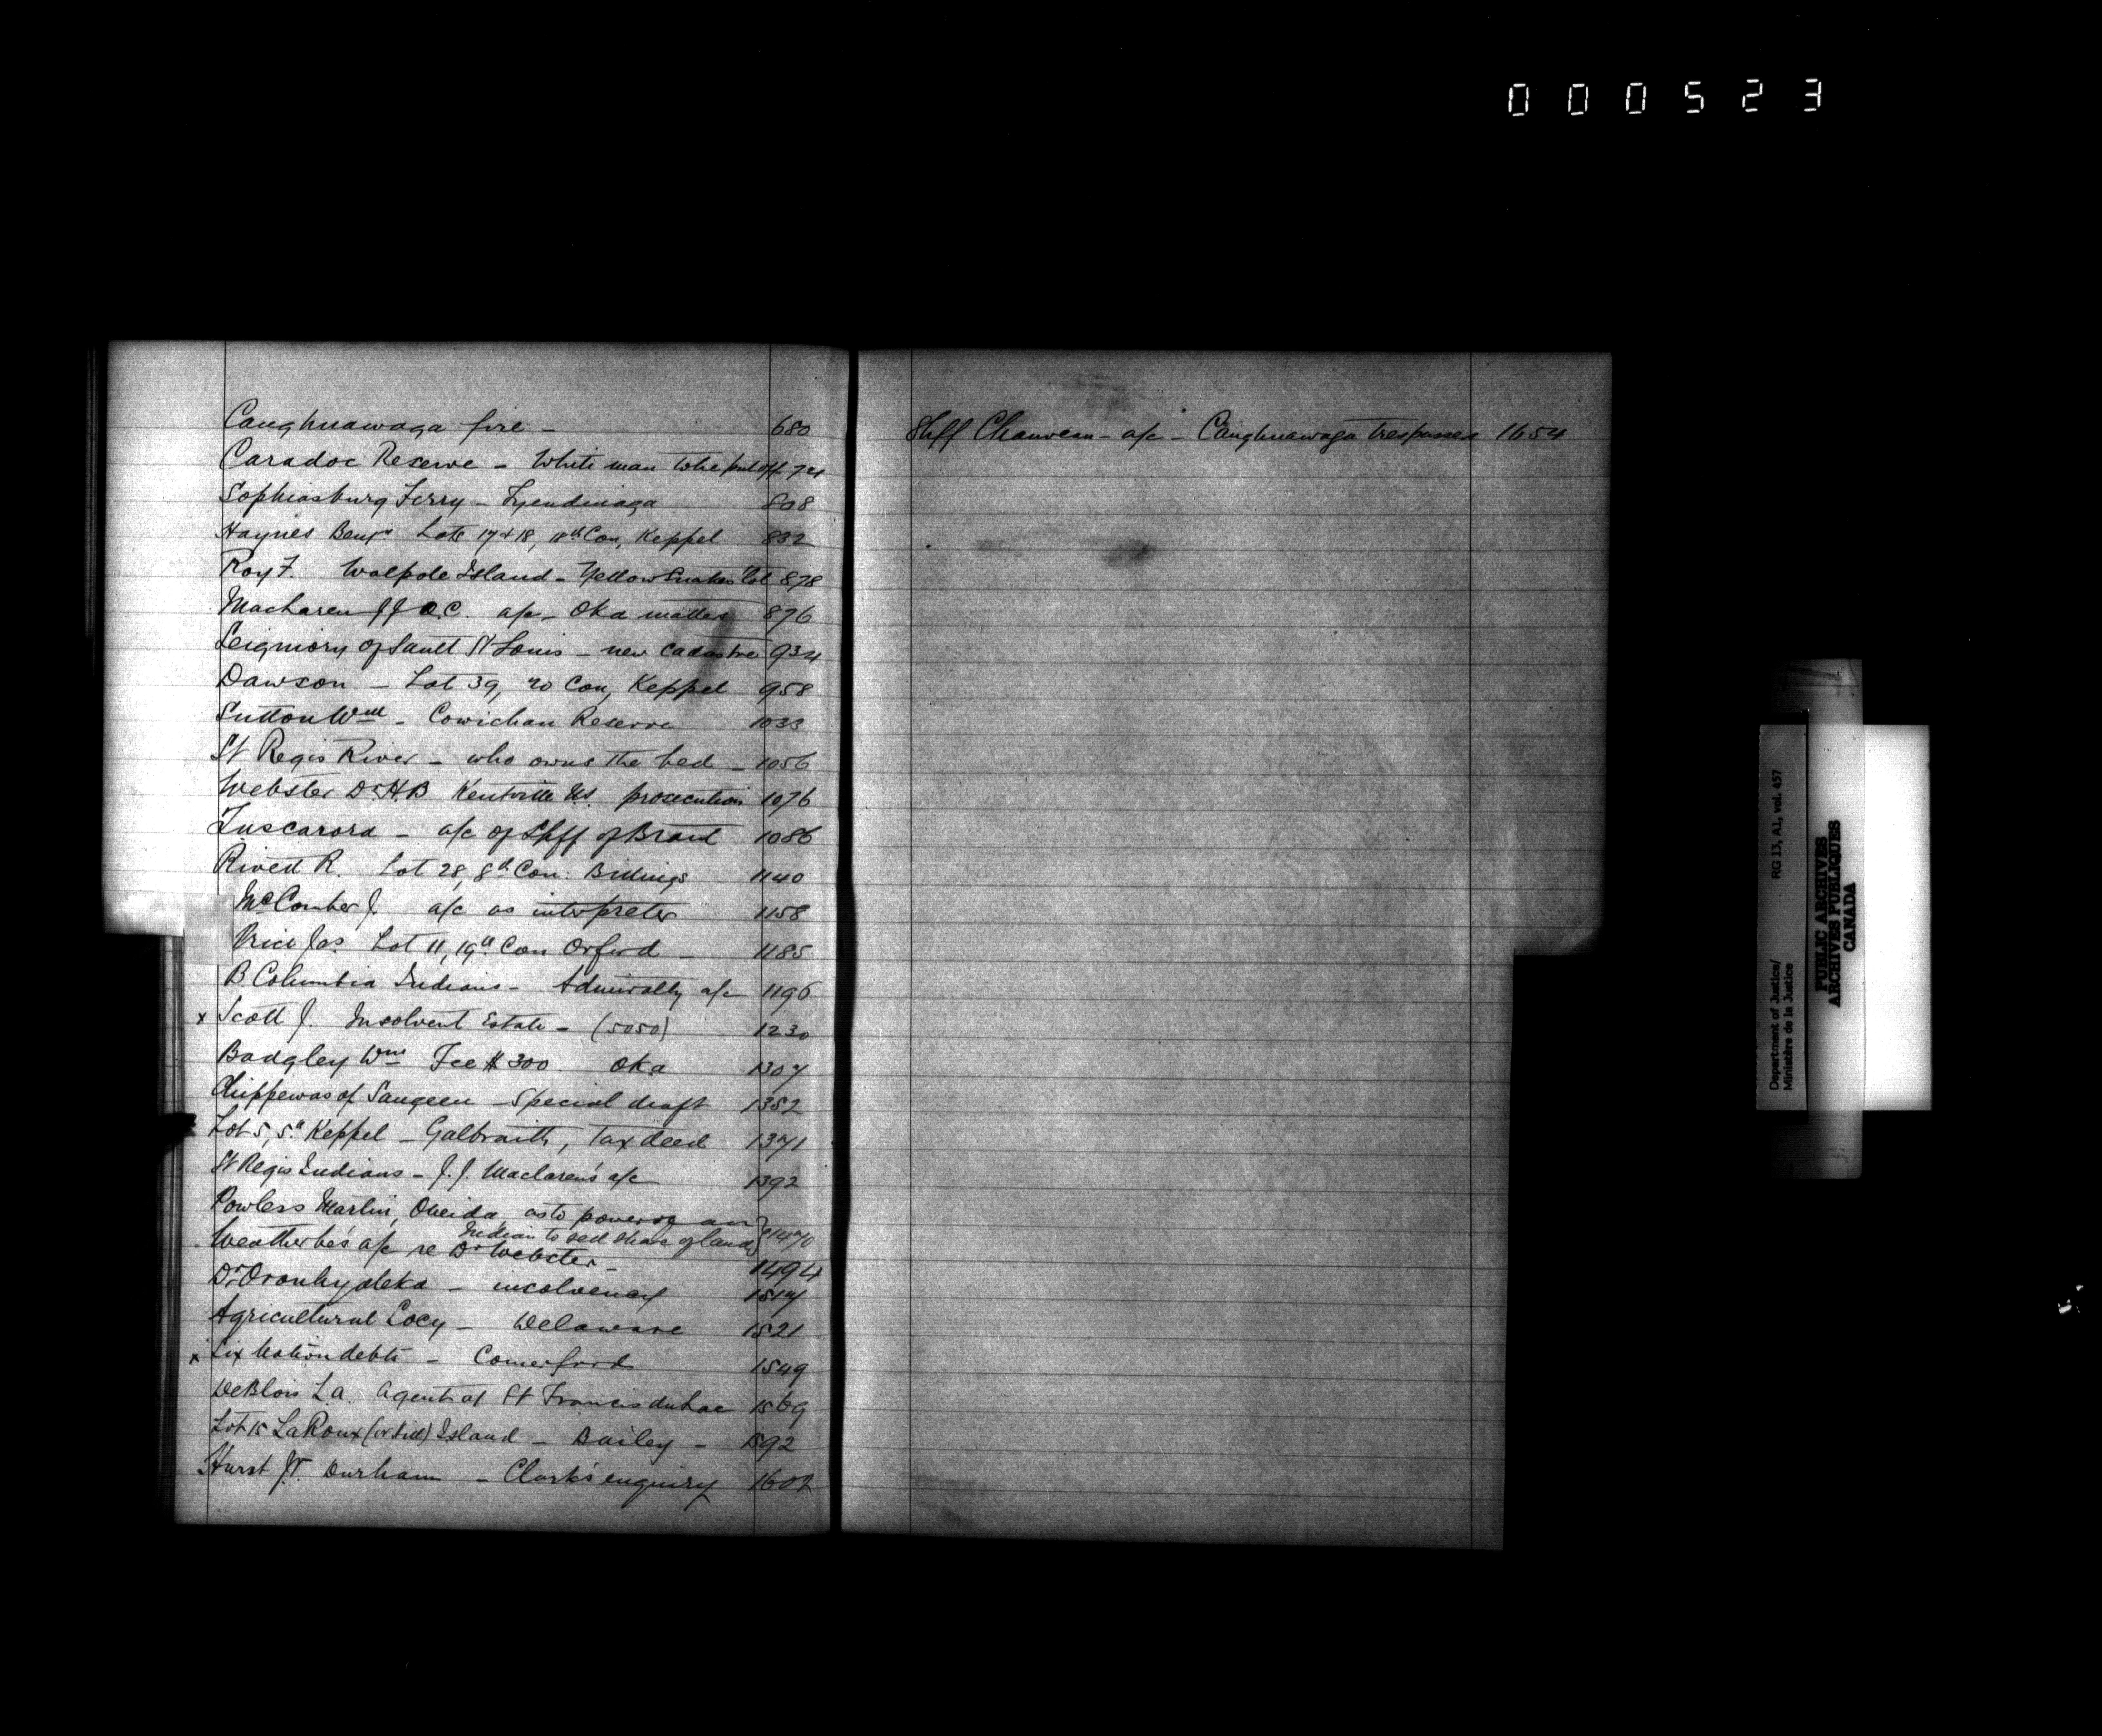 000523
Caughnawaga fire - 680
Caradoc Reserve - White man to be put off. 724
Sophiasburg Ferry - Tyendinaga 808
Haynes Benjn Lots 17 & 18, 18th Con, Keppel 832
Roy F. Walpole Island - Yellow Snakes lot 878
Maclaren J J Q.C. a/c - Oka matter 876
Seigniory of Sault St Louis - new cadastre 934
Dawson - Lot 39, 20 Con, Keppel 958
Sutton Wm - Cowichan Reserve 1033
St Regis River - who owns the bed - 1056
Webster Dr H.B Kentville NS. prosecution 1076
Tuscarora - a/c of Shff of Brant 1086
Rivett R. Lot 28, 8th Con: Billings 1140
McComber J. a/c as interpreter 1158
Price Jas Lot 11, 19th Con Orford - 1185
B. Columbia Indians - Admiralty a/c 1196
x Scott J. Insolvent Estate - (5050) 1230
Badgley Wm Fee $300. Oka 1307
Chippewas of Saugeen - Special draft 1352
Lot 5, 5th Keppel - Galbraith, Tax deed 1371
St Regis Indians - J. J. Maclaren's a/c 1392
Powless Martin, Oneida as to power of an
Indian to sell share of land } 1470
Weatherbe's a/c re Dr Webster - 1494
Dr Oronhyateka - insolvency 1517
Agricultural Socy - Delaware 1521
x Six Nation debts - Comerford 1549
DeBlois L.A. Agent at St Francis du Lac 1569
Lot 15 LaRoux Island - Bailey - 1592
Hurst Jr. Durham - Clark's enquiry 1602
Shff Chauveau - a/c - Caughnawaga trespasses 1654
Department of Justice/ RG 13, A1, vol. 457
Ministère de la Justice
PUBLIC ARCHIVES
ARCHIVES PUBLIQUES
CANADA